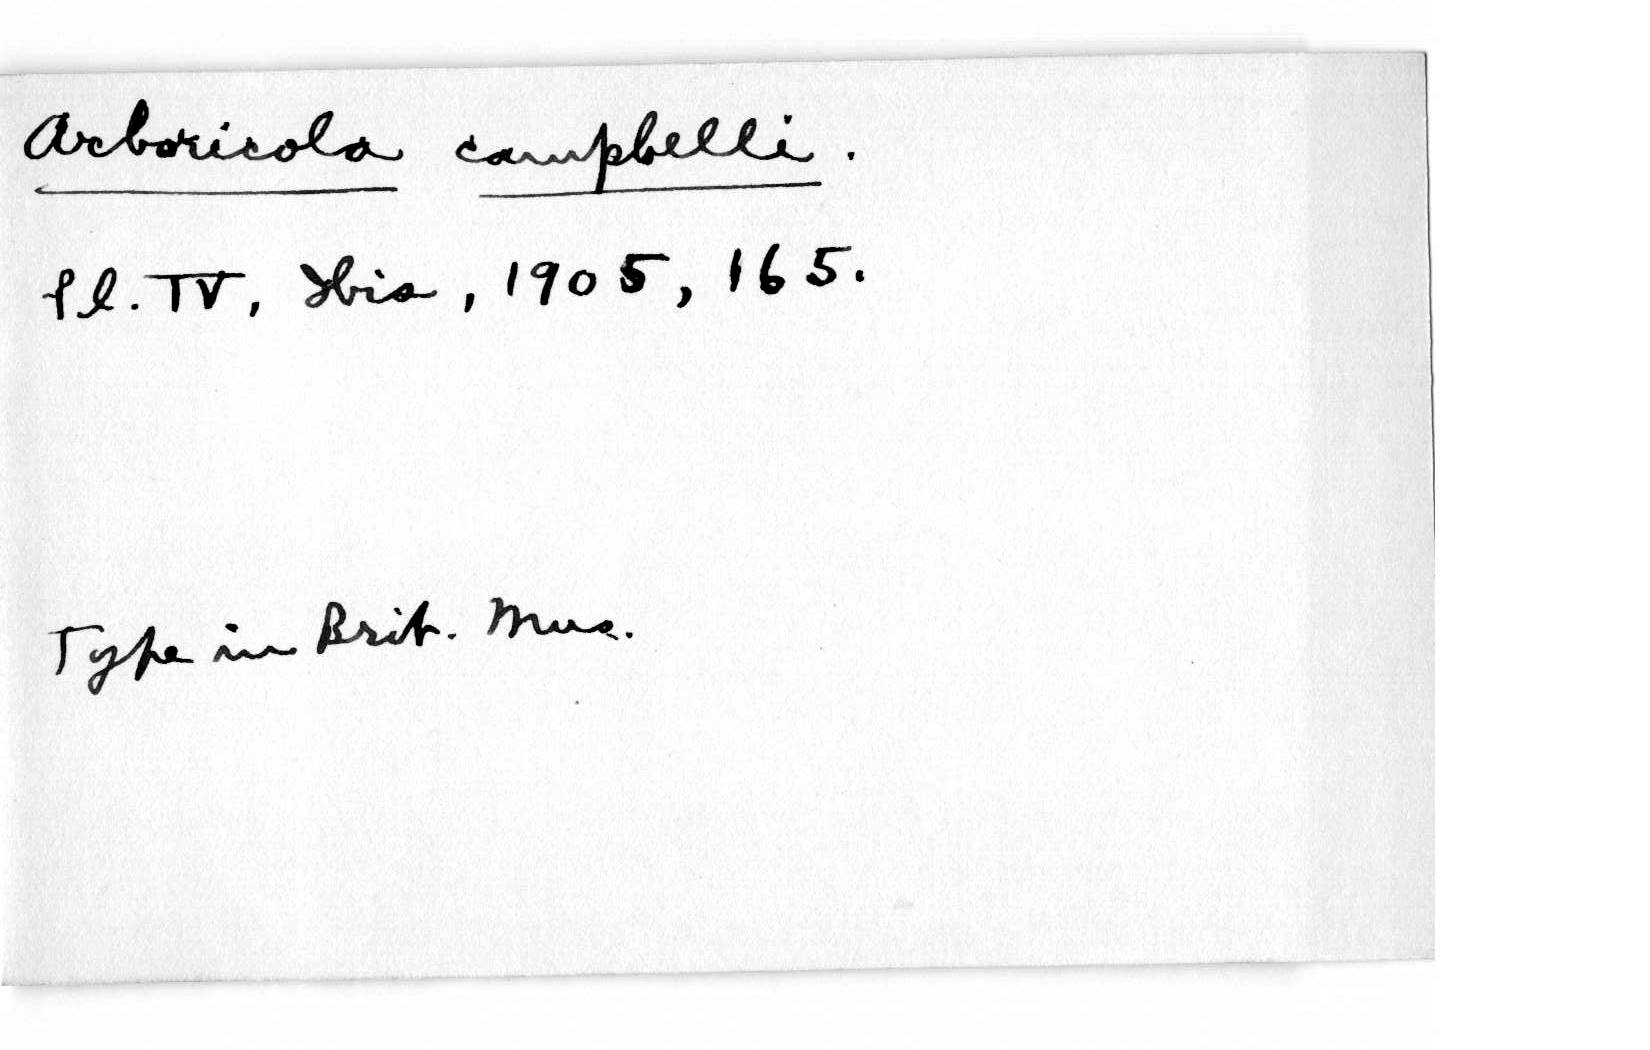 Arboricola campbelli.
Pl. IV, Ibis, 1905, 165.
Type in Brit. Mus.